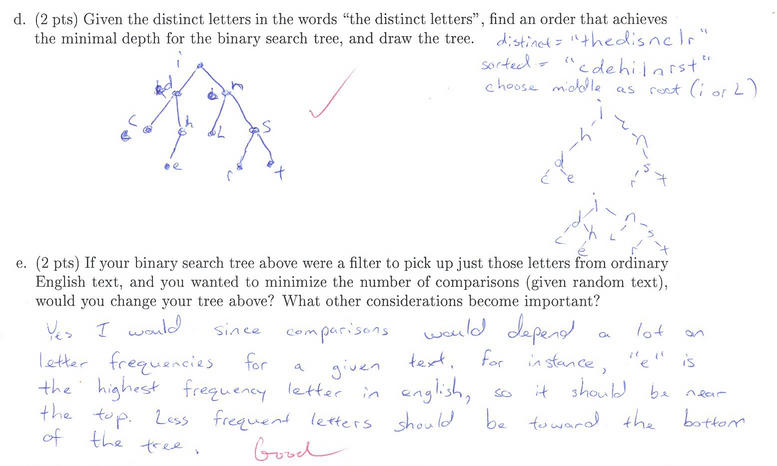 d. (2 pts) Given the distinct letters in the words “the distinct letters”, find an order that achieves
the minimal depth for the binary search tree, and draw the tree.
distinct = "thedisnclr"
sorted = "cdehilnrst"
choose middle as root (i or L)
i
d n
c h L s
e r t
i
h n
d s
c e r t
i
d n
c h L s
e r t
e. (2 pts) If your binary search tree above were a filter to pick up just those letters from ordinary
English text, and you wanted to minimize the number of comparisons (given random text),
would you change your tree above? What other considerations become important?
Yes I would since comparisons would depend a lot on
letter frequencies for a given text. For instance, "e" is
the highest frequency letter in english, so it should be near
the top. Less frequent letters should be toward the bottom
of the tree.
Good